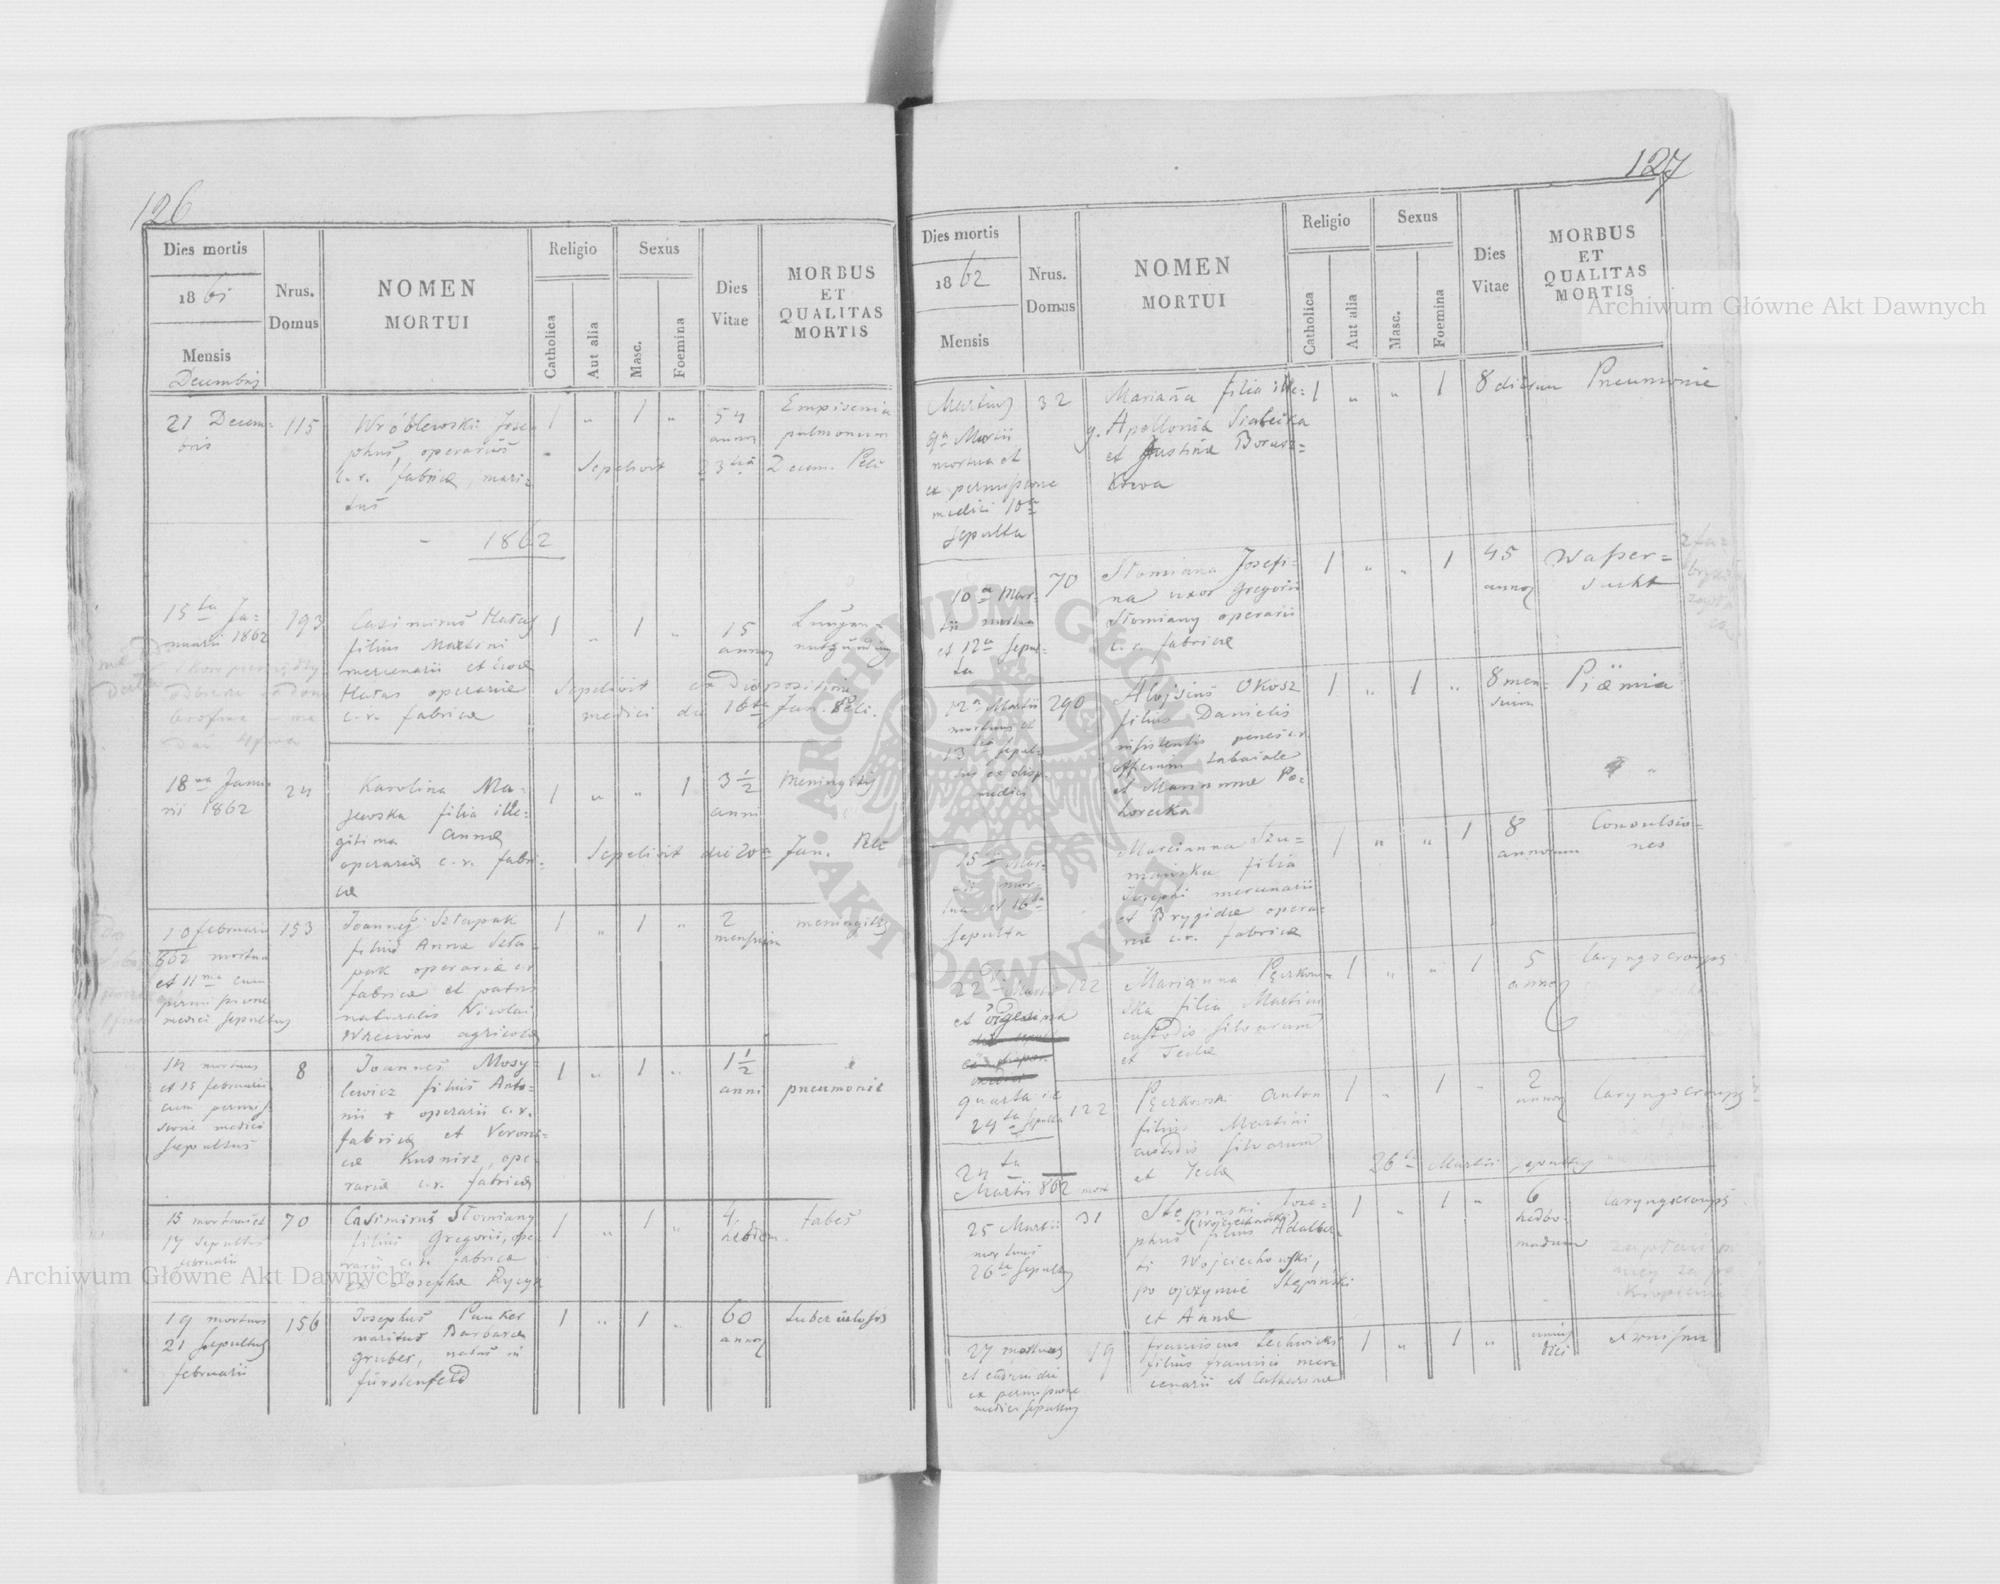 126
Dies mortis
1861
Mensis
Decembris
Nrus.
Domus
NOMEN
MORTUI
Religio
Catholica
Aut alia
Sexus
Masc.
Foemina
Dies
Vitae
MORBUS
ET
QUALITAS
MORTIS
21 Decem-
bris
115
Wróblewski Jose-
phus, operarius
c. r. fabricæ, mari-
tus
1 „ 1 „
54
annor
pulmonum
Sepelivit 23tia Decem.
1862
15ta Ja-
nuarii 1862
193
Casimirus Hałas
filius Martini
mercenarii et Evæ
Hałas operariæ
c. r. fabricæ
1 „ 1 „
15
annor
Sepelivit ex dispositione
medici die 16ta Jan.
18va Janua-
rii 1862
24
Karolina Ma-
jewska filia ille-
gitima Annæ
operariæ c. r. fabri-
cæ
1 „ „ 1
3 1/2
anni
Meningitis
Sepelivit die 20a Jan.
10 februarii
862 mortuus
et 11ma cum
permissione
medici sepultus
153
Joannes Sztapak
filius Annæ Szta-
pak operariæ c. r.
fabricæ et patris
naturalis Nicolai
agricolæ
1 „ 1 „
2
mensium
meningitis
14 mortuus
et 15 februarii
cum permis-
sione medici
sepultus
8
Joannes Mosy-
lewicz filius Anto-
nii operarii c. r.
fabricæ et Veroni-
cæ Kusnirz, ope-
rariæ c. r. fabricæ
1 „ 1 „
1 1/2
anni
pneumonie
15 mortuus et
17 sepultus
februarii
70
Casimirus Słomiany
filius Gregorii, ope-
rarii c. r. fabricæ
et Josephæ
1 „ 1 „
4
hebdom.
tabes
19 mortuus
21 sepultus
februarii
156
Josephus Pauker
maritus Barbaræ
Gruber, natus in
Fürstenfeld
1 „ 1 „
60
annor
tuberculosis
127
Dies mortis
1862
Mensis
Nrus.
Domus
NOMEN
MORTUI
Religio
Catholica
Aut alia
Sexus
Masc.
Foemina
Dies
Vitae
MORBUS
ET
QUALITAS
MORTIS
Martius
9a Martii
mortua et
ex permissione
medici 10a
sepulta
32
Marianna filia ille-
g. Apollonia
et Justinæ
1 „ „ 1
8 dierum
Pneumonie
10a Mar-
tii mortua
et 12a sepul-
ta
70
Słomiana Josefi-
na uxor Gregorii
Słomiany operarii
c. r. fabricæ
1 „ „ 1
45
annor
Wasser-
sucht
12a Martii
mortuus et
13 sepul-
tus ex disp.
medici
290
Alojsius Okosz
filius Danielis
assistentis penes c. r.
officium tabaiale
et Mariannæ Po-
horecka
1 „ 1 „
8 men-
sium
Piämia
15 Mar-
tii mor-
tua et 16ta
sepulta
Marcianna Szu-
mańska filia
Josephi mercenarii
et Brygidæ opera-
riæ c. r. fabricæ
1 „ „ 1
8
annorum
Convulsio-
nes
22
et vigesima
quarta
24ta sepulta
122
Marianna Pęzkow-
ska filia Martini
custodis silvarum
et Teclæ
1 „ „ 1
5
annor
laryngs croupes
24ta
Martii 862 mort
122
Pęzkowski Anton
filius Martini
custodis silvarum
et Teclæ
1 „ 1 „
2
annor
laryngs croups
26ta Martii sepultus
25 Martii
mortuus
26ta sepultus
31
Stępinski Jose-
phus (Wojciechowski) filius Adalber-
ti Wojciechowski,
po ojczymie Stępiński
et Annæ
1 „ 1 „
6
hebdo-
madum
laryngs croups
27 mortuus
et eadem die
ex permissione
medici sepultus
19
franciscus Lechwicki
filius francisci merc-
cenarii et Catharinæ
1 „ 1 „
unius
diei
Archiwum Główne Akt Dawnych
Archiwum Główne Akt Dawnych
ARCHIWUM GŁÓWNE AKT DAWNYCH